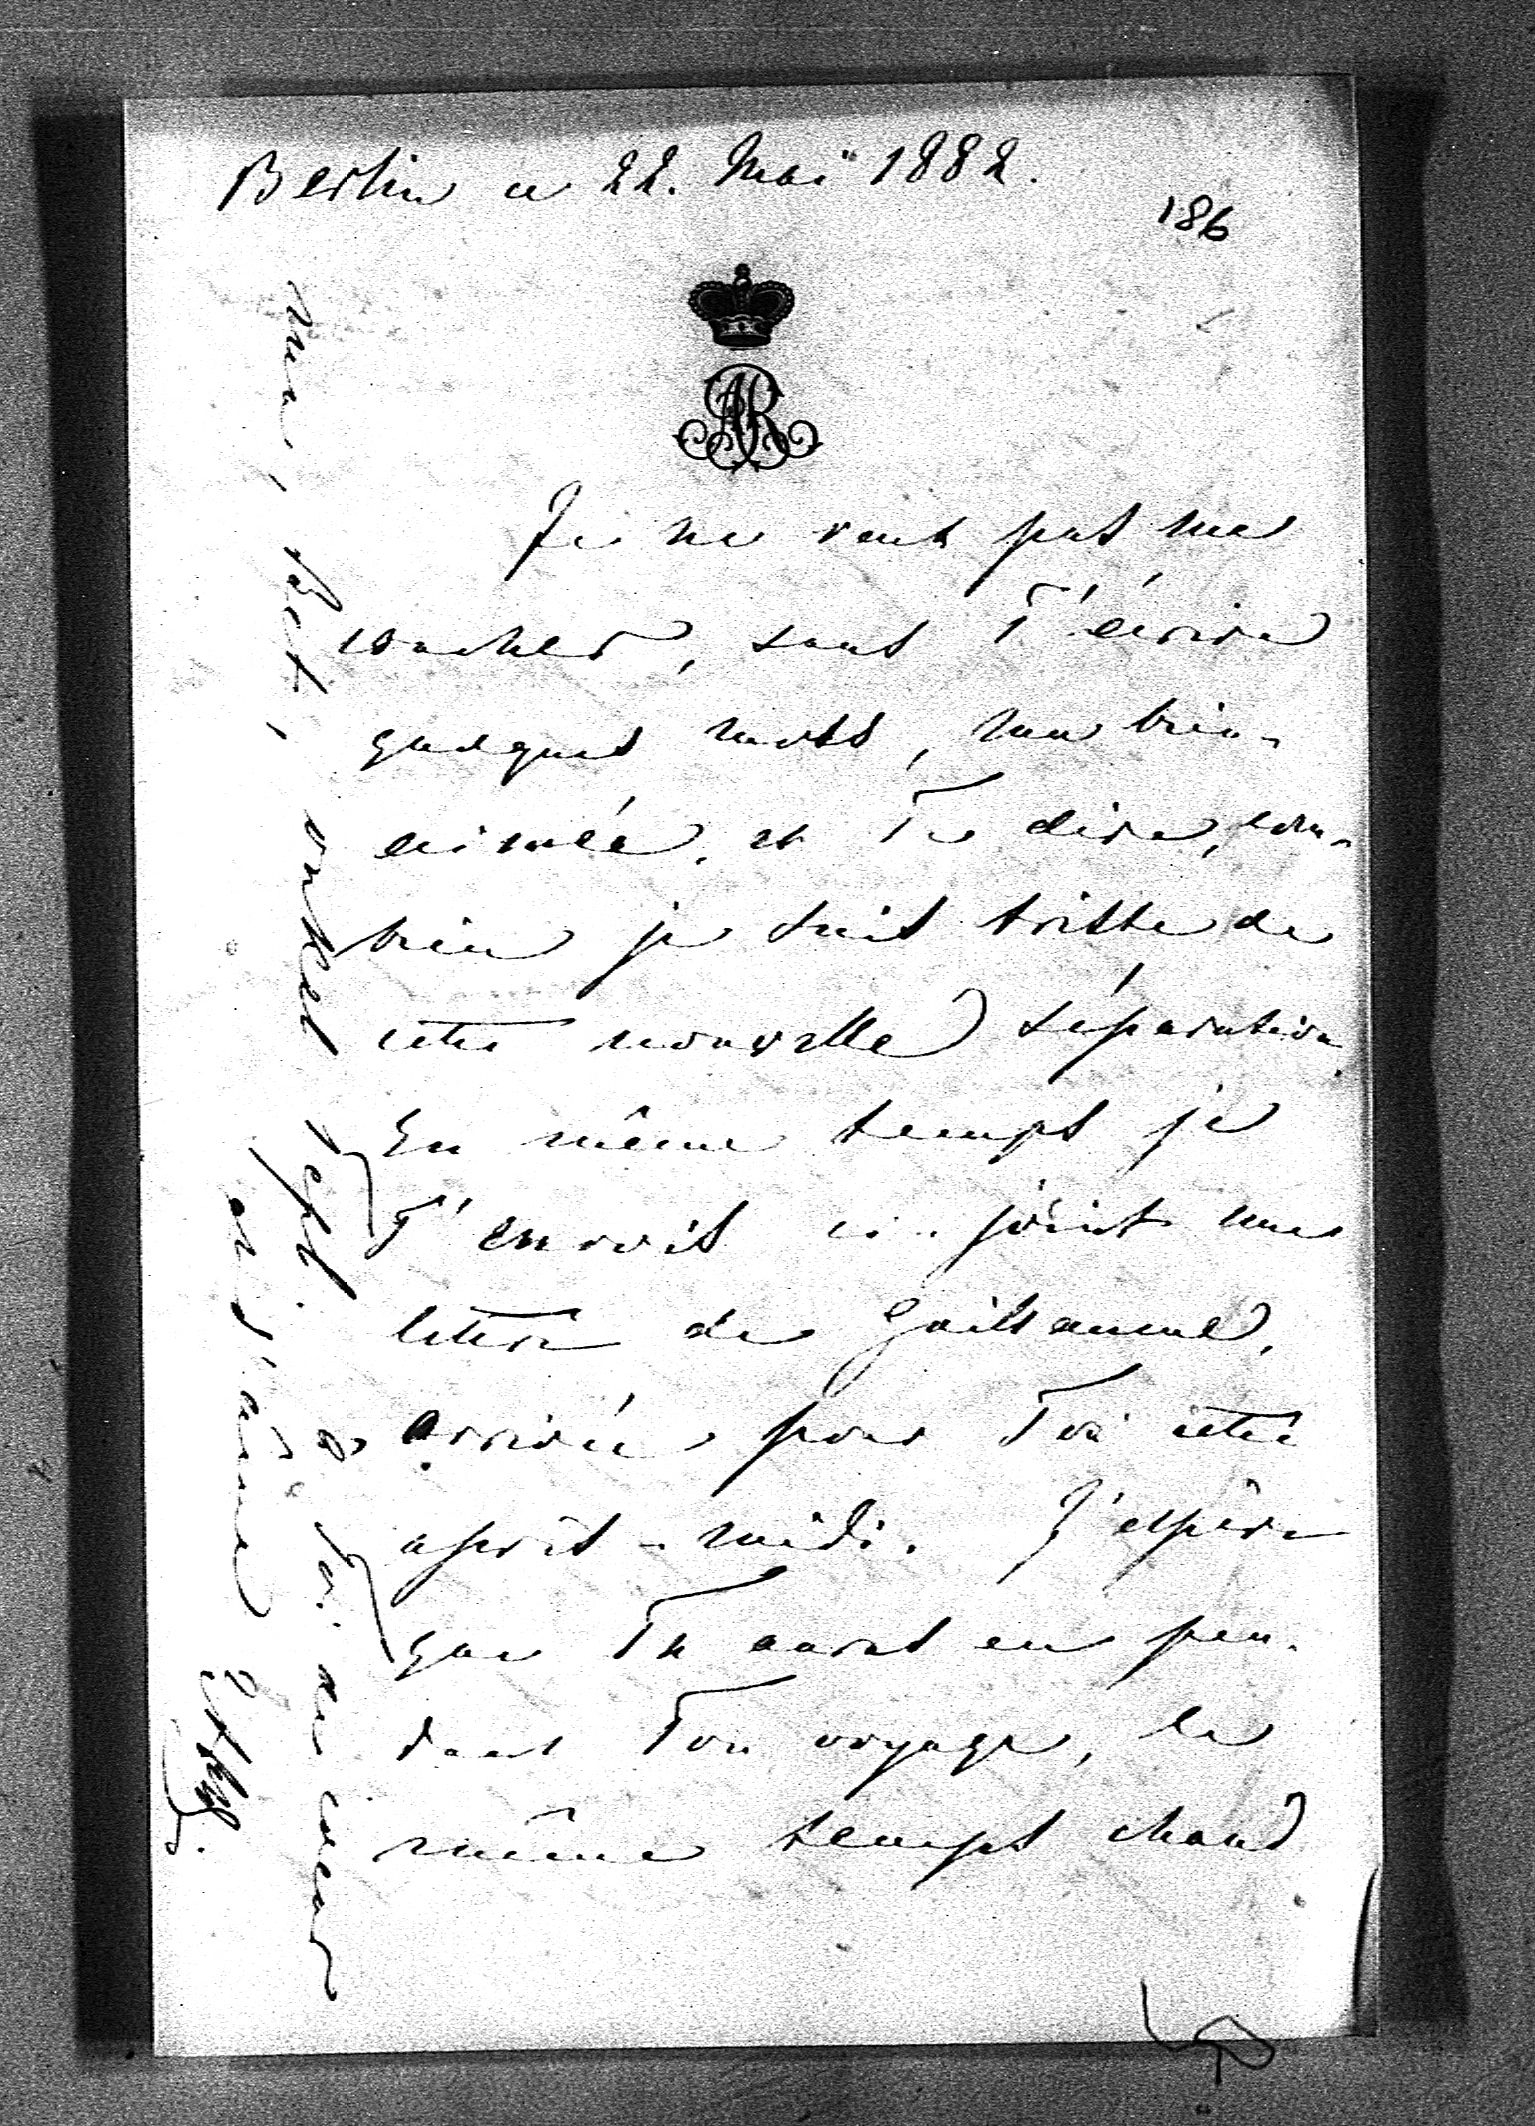 Berlin ce 22. Mai 1882.
186
AR
Je ne veut pas me
coucher, sans T'écrire
quelques mots, ma bien-
aimée, et Te dire, com-
bien je suis triste de
cette nouvelle séparation.
En même temps je
T'envois ci-joint une
lettre de Guillaume,
arrivée pour Toi cette
après-midi. J'espère
que Tu auras eu pen-
dant Ton voyage, le
même temps chaud
à Toi de cœur
et d'âme